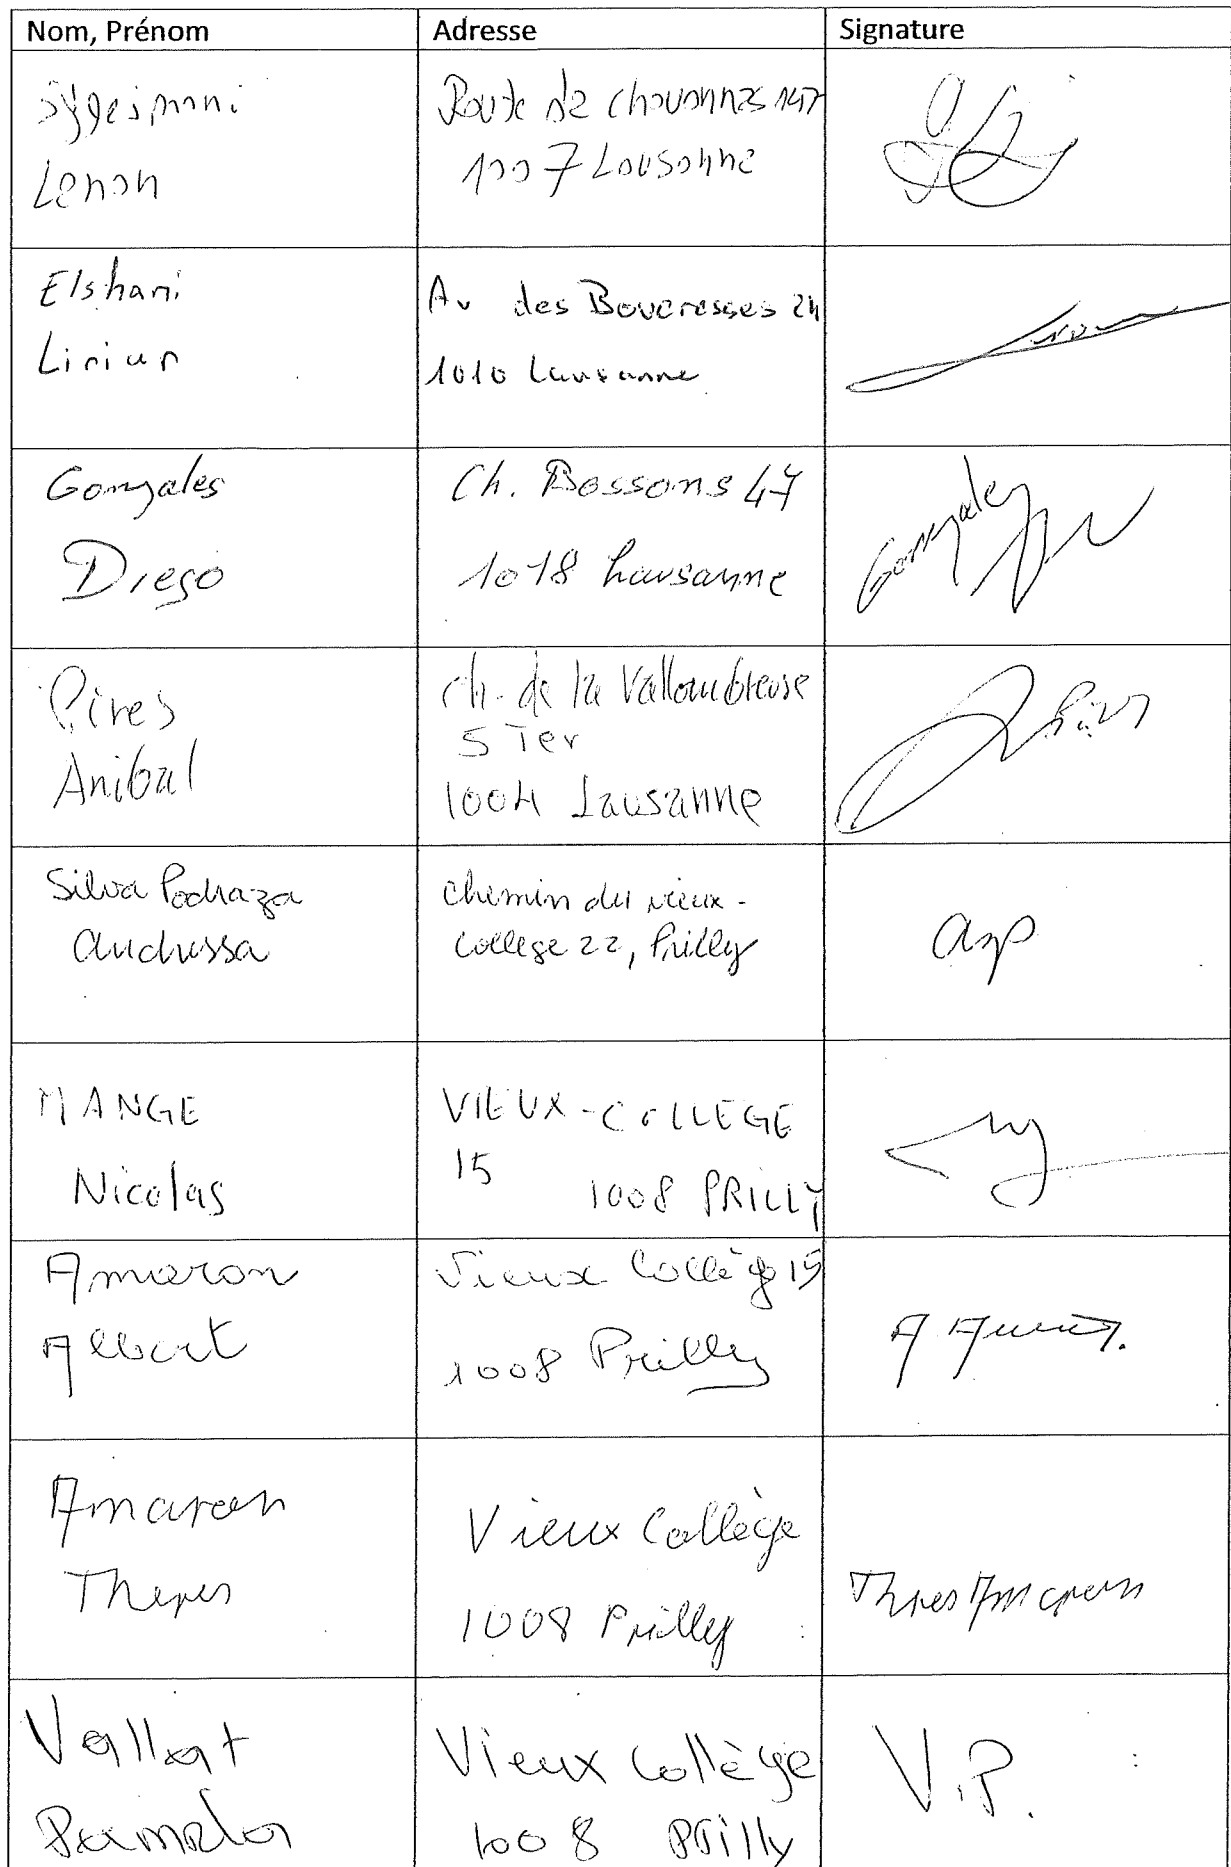 Nom, Prénom Adresse Signature
Lenon
Route de chavannes 147
1007 Lausanne
Elshani
Av des Boveresses 24
1010 Lausanne
Gonzales
Diego
Ch. Bossons 47
1018 Lausanne
Gonzales
Pires
Anibal
ch. de la Vallombreuse
5 Ter
1004 Lausanne
Pires
Silva
chemin du vieux-
college 22, Prilly
MANGE
Nicolas
VIEUX-COLLEGE
15 1008 PRILLY
Amaron
Albert
Vieux Collège 15
1008 Prilly
Amaron
Vieux Collège
1008 Prilly
Amaron
Vallat
Pamela
Vieux Collège
1008 Prilly
V.P.